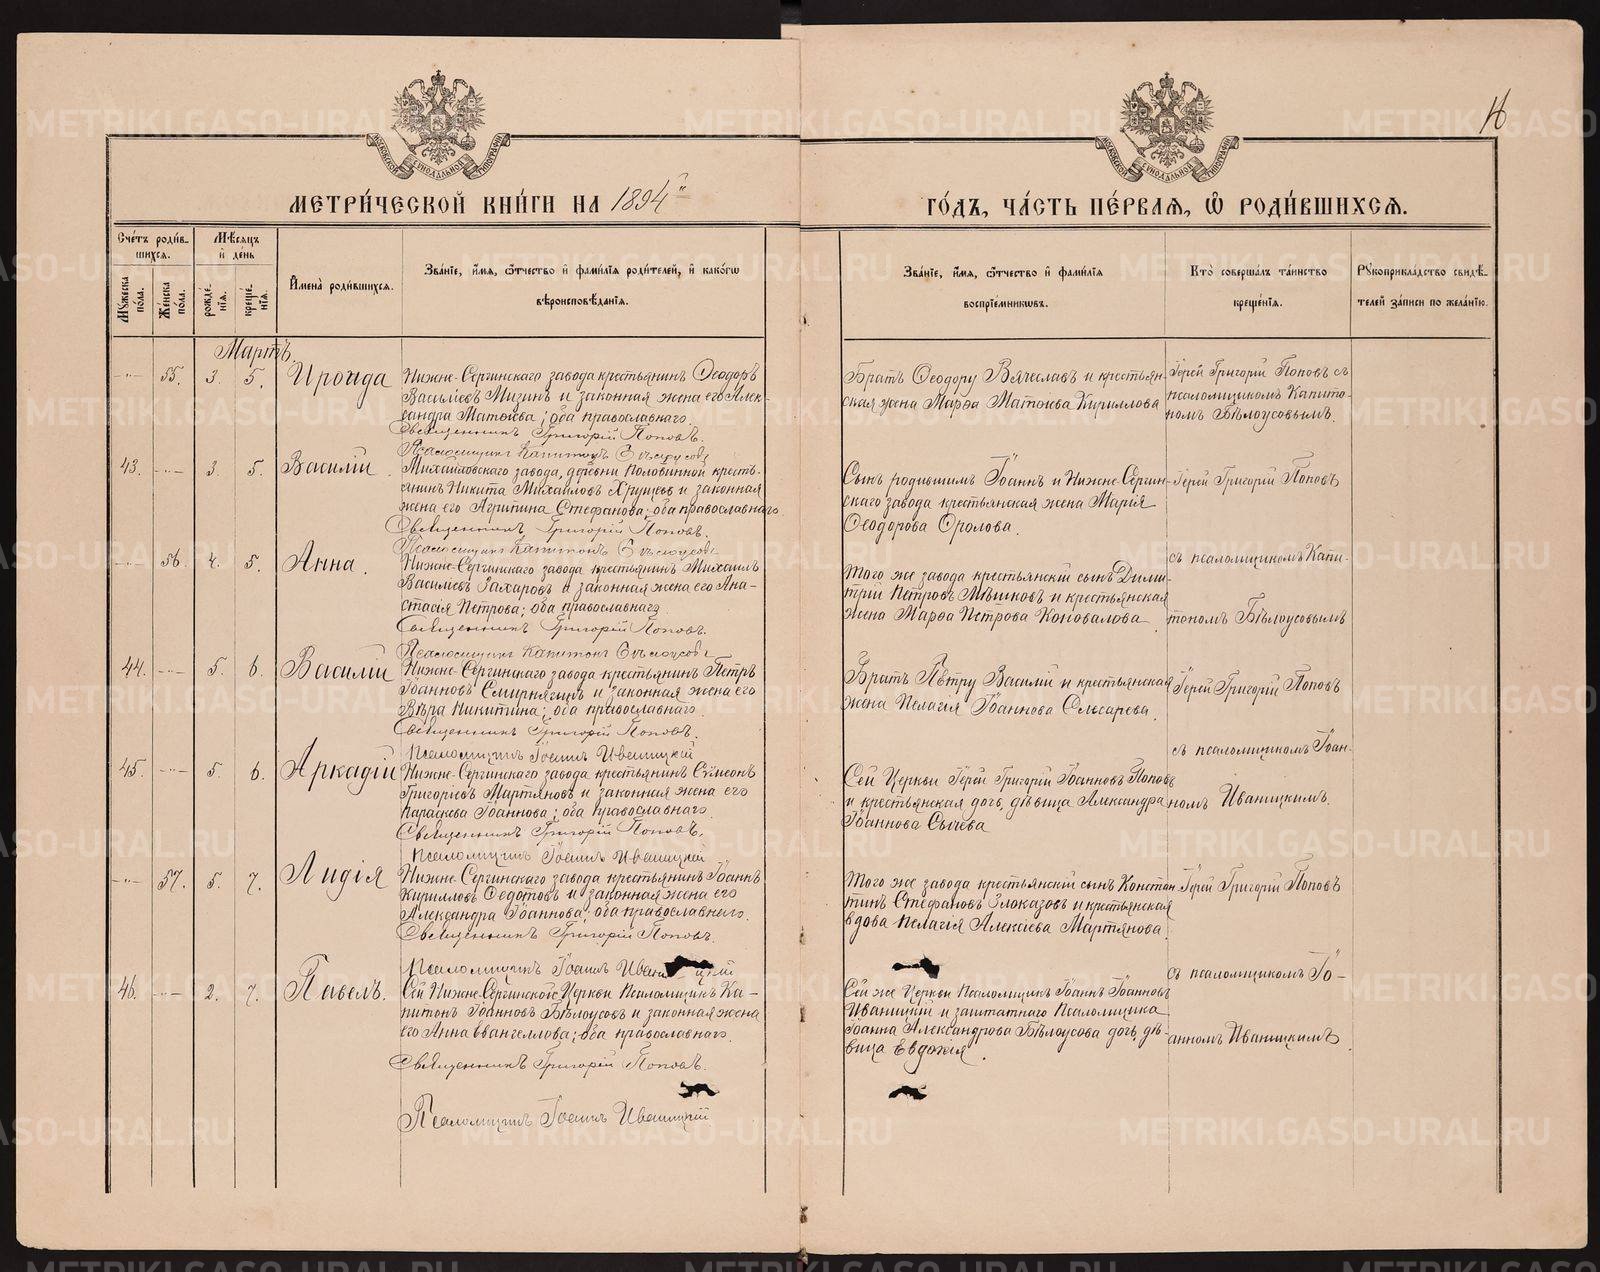 16
МОСКОВСКОЙ СѴНОДАЛЬНОЙ ТИПОГРАФІИ
МОСКОВСКОЙ СѴНОДАЛЬНОЙ ТИПОГРАФІИ
МЕТРИ́ЧЕСКОЙ КНИ́ГИ НА 1894й
ГО́ДЪ, ЧА́СТЬ ПЕ́РВАѦ, Ѡ РОДИ́ВШИХСѦ.
Сче́тъ роди́в-
шихсѧ.
Мꙋ́жеска по́ла.
Же́нска по́ла.
Мѣ́сѧцъ
и҆ де́нь
рожде́нїѧ.
креще́нїѧ.
И҆мена̀ роди́вшихсѧ.
Зва́нїе, и҆́мѧ, ѻ҆́тчество и҆ фами́лїѧ роди́телей, и҆ како́гѡ
вѣроисповѣ́данїѧ.
Зва́нїе, и҆́мѧ, ѻ҆́тчество и҆ фами́лїѧ
воспрїе́мникѡвъ.
Кто̀ соверша́лъ та́инство
креще́нїѧ.
Рꙋкоприкла́дство свидѣ́-
телей за́писи по жела́нїю.
Мартъ.
-"- 55. 3. 5. Ироида
Нижне-Сергинскаго завода крестьянинъ Ѳеодоръ
Василіевъ Мизинъ и законная жена его Алек-
сандра Матѳіева; оба православнаго.
Священникъ Григорій Поповъ.
Псаломщикъ Капитонъ Бѣлоусовъ
Братъ Ѳеодору Вячеславъ и крестьян-
ская жена Марѳа Матѳіева Кириллова
Іерей Григорій Поповъ съ
псаломщикомъ Капито-
номъ Бѣлоусовымъ.
43. -"- 3. 5. Василій
Михайловскаго завода, деревни Половинной кресть-
янинъ Никита Михайловъ Хрущевъ и законная
жена его Агрипина Стефанова; оба православнаго.
Священникъ Григорій Поповъ.
Псаломщикъ Капитонъ Бѣлоусовъ
Сынъ родившимъ Іоаннъ и Нижне-Сергин-
скаго завода крестьянская жена Марія
Ѳеодорова Орлова.
Іерей Григорій Поповъ
-"- 56. 4. 5. Анна.
Нижне-Сергинскаго завода крестьянинъ Михаилъ
Василіевъ Захаровъ и законная жена его Ана-
стасія Петрова; оба православнаго.
Священникъ Григорій Поповъ.
Псаломщикъ Капитонъ Бѣлоусовъ
Того же завода крестьянскій сынъ Дими-
трій Петровъ Мѣшковъ и крестьянская
жена Марѳа Петрова Коновалова
съ псаломщикомъ Капи-
тономъ Бѣлоусовымъ
44. -"- 5. 6. Василій
Нижне-Сергинскаго завода крестьянинъ Петръ
Іоанновъ Смирнягинъ и законная жена его
Вѣра Никитина; оба православнаго.
Священникъ Григорій Поповъ.
Псаломщикъ Іоаннъ Иваницкій
Братъ Петру Василій и крестьянская
жена Пелагія Іоаннова Слесарева.
Іерей Григорій Поповъ
съ псаломщикомъ Іоан-
45. -"- 5. 6. Аркадій
Нижне-Сергинскаго завода крестьянинъ Симеонъ
Григоріевъ Мартяновъ и законная жена его
Параскева Іоаннова; оба православнаго.
Священникъ Григорій Поповъ.
Псаломщикъ Іоаннъ Иваницкій
Сей Церкви Іерей Григорій Іоанновъ Поповъ
и крестьянская дочь, дѣвица Александра
Іоаннова Сычева
номъ Иваницкимъ.
-"- 57. 5. 7. Лидія
Нижне-Сергинскаго завода крестьянинъ Іоаннъ
Кирилловъ Ѳедотовъ и законная жена его
Александра Іоаннова; оба православнаго.
Священникъ Григорій Поповъ.
Псаломщикъ Іоаннъ Иваницкій
Того же завода крестьянскій сынъ Констан-
тинъ Стефановъ Злоказовъ и крестьянская
вдова Пелагія Алексіева Мартянова.
Іерей Григорій Поповъ
съ псаломщикомъ Іо-
46. -"- 2. 7. Павелъ.
Сей Нижне-Сергинской Церкви Псаломщикъ Ка-
питонъ Іоанновъ Бѣлоусовъ и законная жена
его Анна Евангеллова; оба православнаго.
Священникъ Григорій Поповъ.
Псаломщикъ Іоаннъ Иваницкій
Сей же Церкви Псаломщикъ Іоаннъ Іоанновъ
Иваницкій и заштатнаго Псаломщика
Іоанна Александрова Бѣлоусова дочь, дѣ-
вица Евдокія.
анномъ Иваницкимъ
METRIKI.GASO-URAL.RU